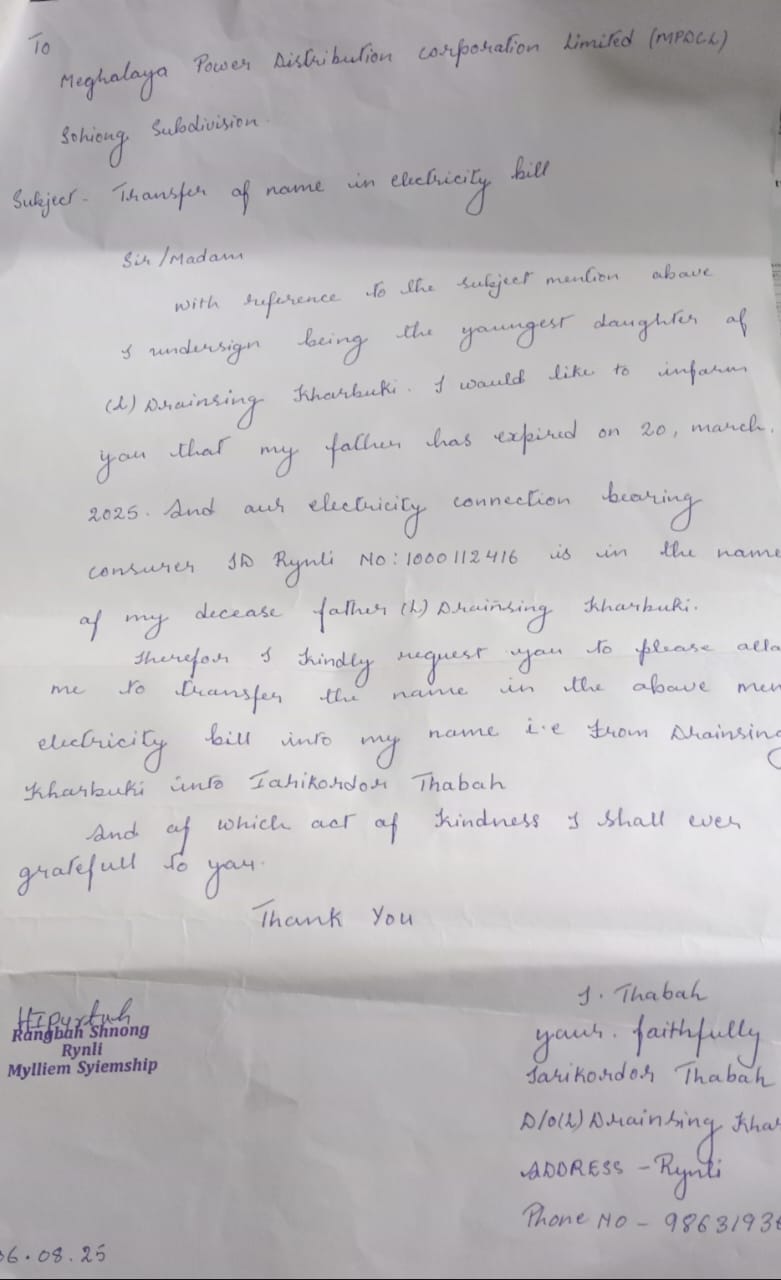 To
Meghalaya Power Distribution corporation Limited (MPDCL)
Sohiong Subdivision.
Subject - Transfer of name in electricity bill
Sir/Madam
With reference to the subject mention above
I undersign being the youngest daughter of
(L) Drainsing Kharbuki. I would like to inform
you that my father has expired on 20, march.
2025. And our electricity connection bearing
consurer ID Rynli No: 1000112416 is in the name
of my decease father (L) Drainsing Kharbuki.
Therefor I kindly request you to please allo
me to transfer the name in the above men
electricity bill into my name i.e from Drainsing
Kharbuki into Iarikordor Thabah
And of which act of kindness I shall ever
gratefull to you.
Thank You
I. Thabah
your. faithfully
Iarikordor Thabah
D/o(L) Drainsing Khar
ADDRESS - Rynli
Phone No - 9863193
Rangbah Shnong
Rynli
Mylliem Syiemship
06.08.25